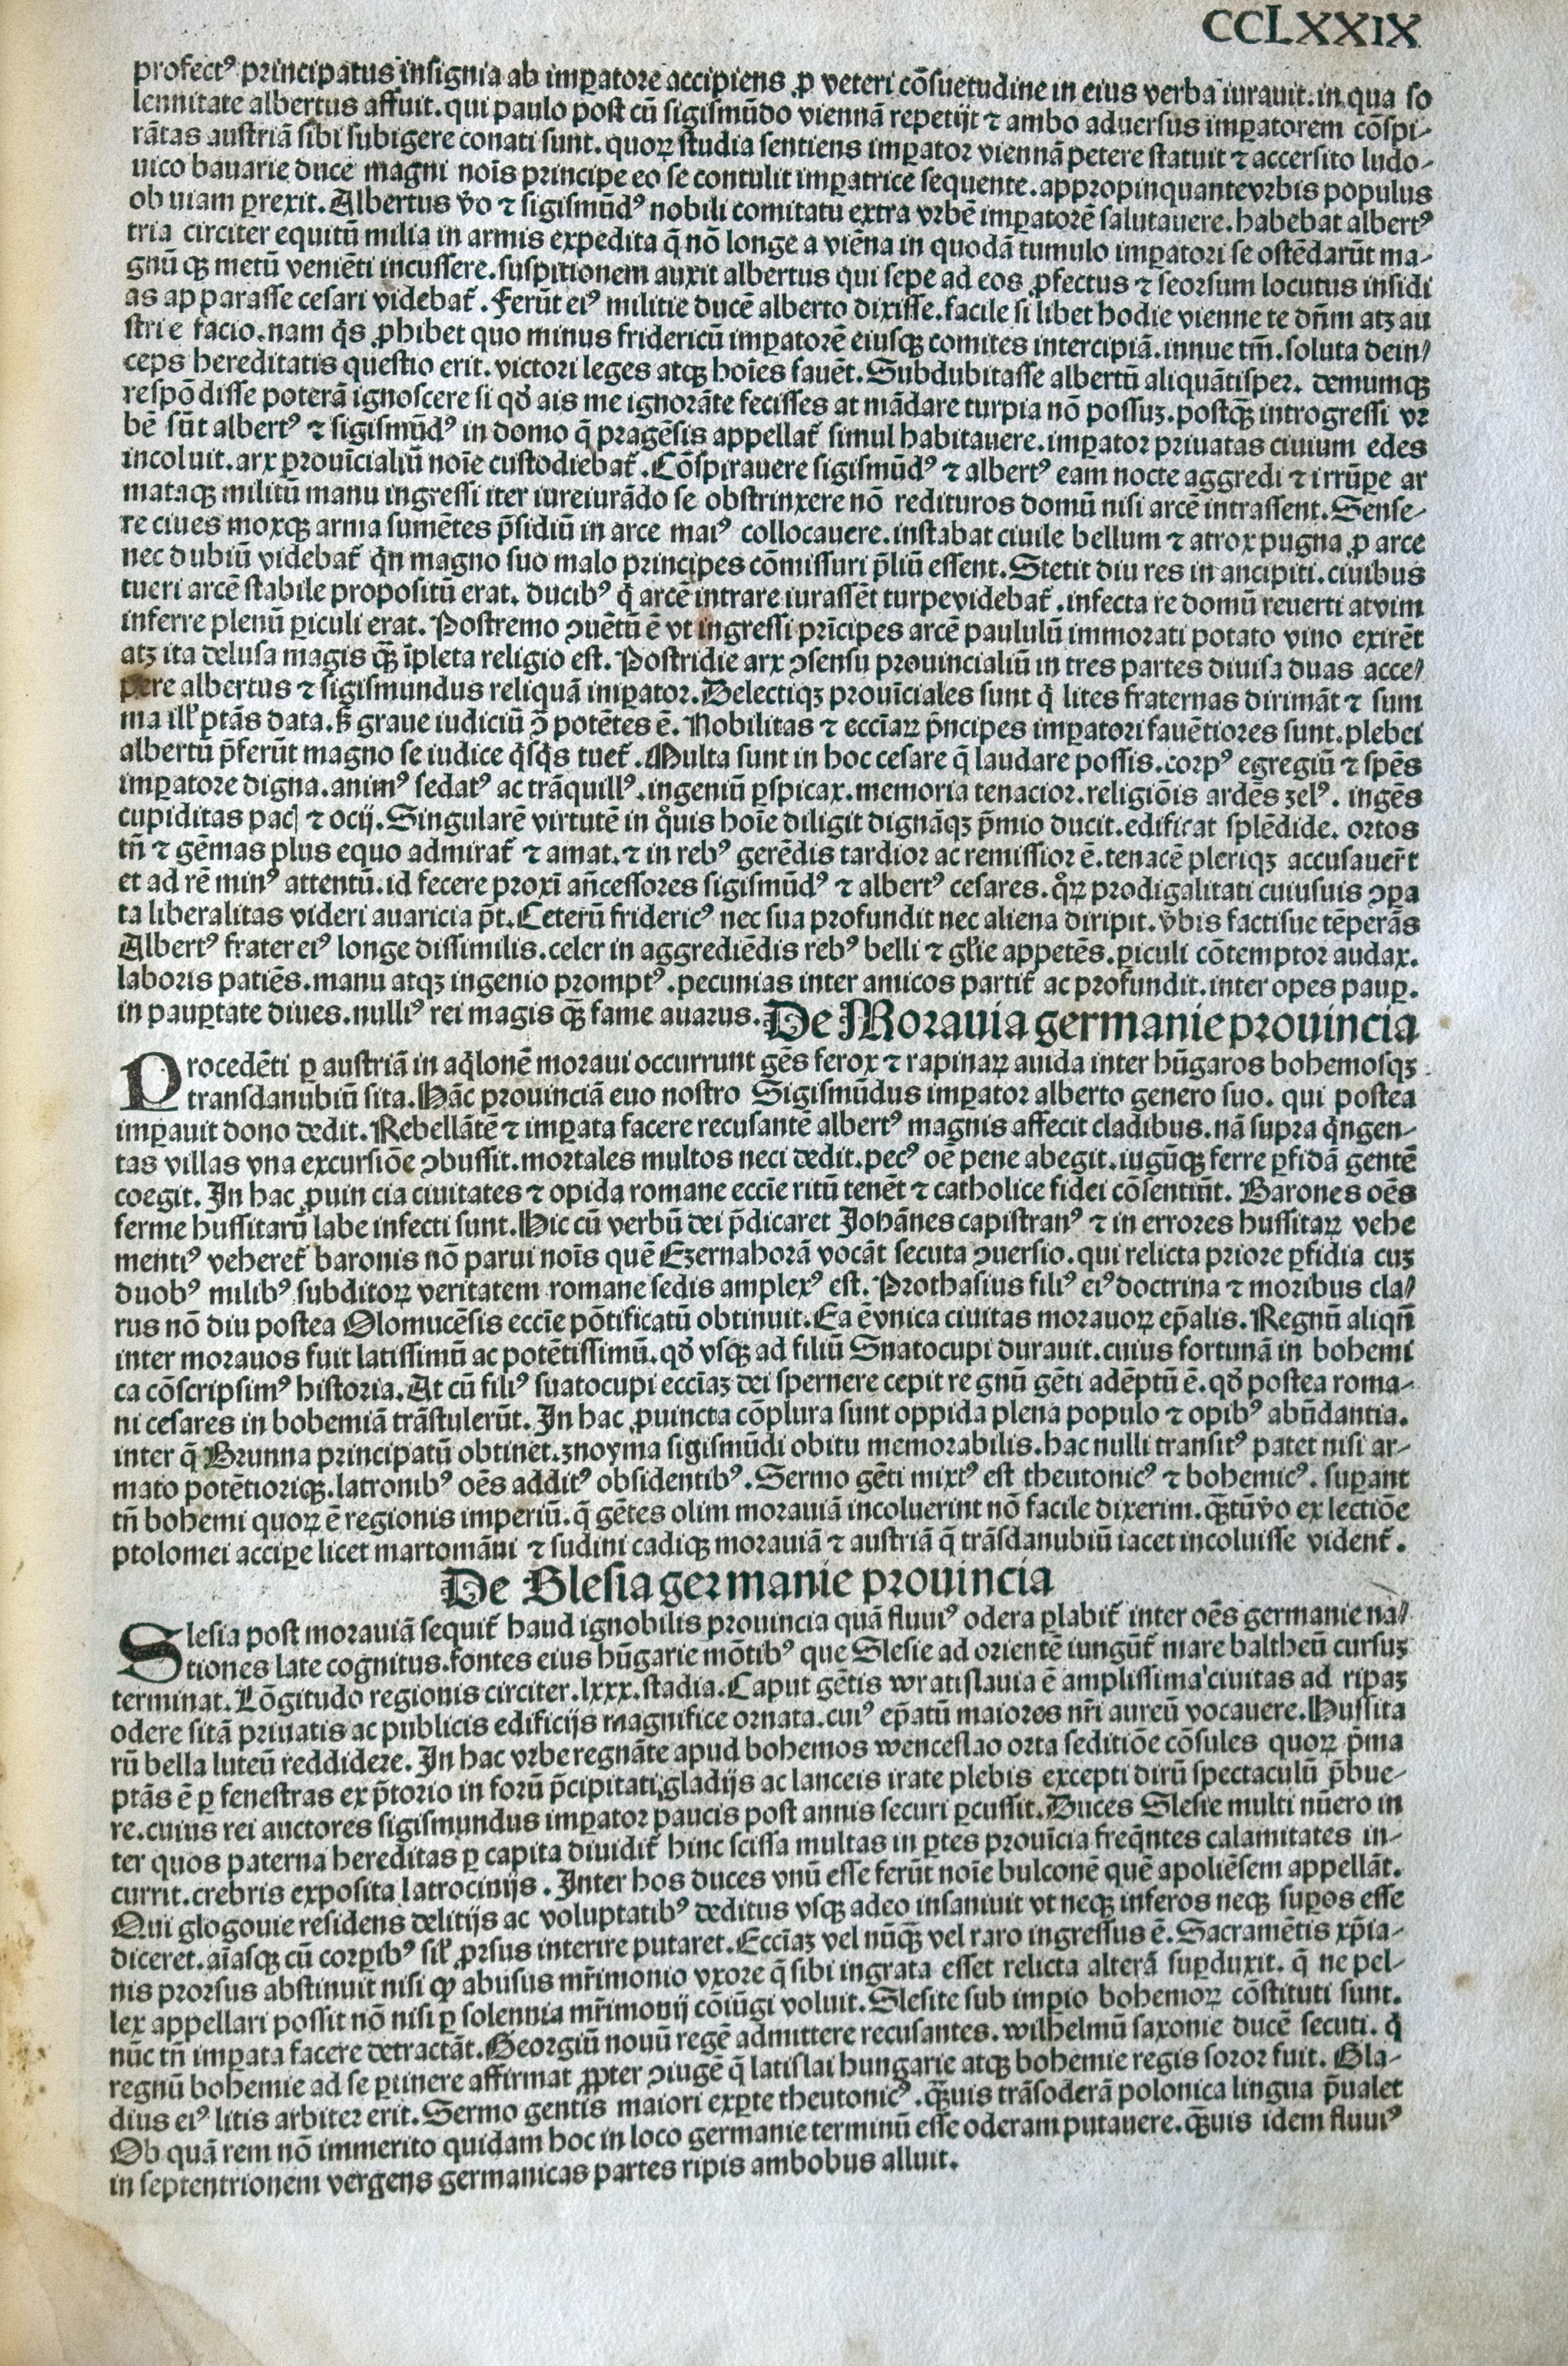 CCLXXIX
profectꝰ principatus insignia ab imꝑatore accipiens ꝓ veteri cōsuetudine in eius verba iurauit. in qua so
lennitate albertus affuit. qui paulo post cū sigismūdo viennā repetijt ⁊ ambo aduersus imꝑatorem cōspi-
rātas austriā sibi subigere conati sunt. quoꝝ studia sentiens imꝑator viennā petere statuit ⁊ accersito ludo-
uico bauarie duce magni noīs principe eo se contulit imꝑatrice sequente. appropinquante vrbis populus
ob uiam ꝑrexit. Albertus v̄o ⁊ sigismūdꝰ nobili comitatu extra vrbē imꝑatorē salutauere. habebat albertꝰ
tria circiter equitū milia in armis expedita q̄ nō longe a viēna in quodā tumulo imꝑatori se ostēdarūt ma-
gnū qꝫ metū veniēti incussere. suspitionem auxit albertus qui sepe ad eos ꝓfectus ⁊ seorsum locutus insidi
as ap parasse cesari videbat᷑. Ferūt eiꝰ militie ducē alberto dixisse. facile si libet hodie vienne te dn̄m atꝫ au
strie facio. nam q̇s ꝓhibet quo minus fridericū imꝑatorē eiusqꝫ comites intercipiā. innue tm̄. soluta dein/
ceps hereditatis questio erit. victori leges atqꝫ hoīes fauēt. Subdubitasse albertū aliquātisper. demumqꝫ
respōdisse poterā ignoscere si qd̓ ais me ignorāte fecisses at mādare turpia nō possuꝫ. postqꝫ̄ introgressi vr
bē sūt albertꝰ ⁊ sigismūdꝰ in domo q̄ pragēsis appellat᷑ simul habitauere. imꝑator priuatas ciuium edes
incoluit. arx ꝓuīcialiū noīe custodiebat᷑. Cōspirauere sigismūdꝰ ⁊ albertꝰ eam nocte aggredi ⁊ irrūꝑe ar
mataqꝫ militū manu ingressi iter iureiurādo se obstrinxere nō redituros domū nisi arcē intrassent. Sense-
re ciues moxqꝫ arma sumētes p̄sidiū in arce maiꝰ collocauere. instabat ciuile bellum ⁊ atrox pugna ꝓ arce
nec dubiū videbat᷑ q̇n magno suo malo principes cōmissuri p̄liū essent. Stetit diu res in ancipiti. ciuibus
tueri arcē stabile propositū erat. ducibꝰ q̇ arcē intrare iurassēt turpe videbat᷑. infecta re domū reuerti at vim
inferre plenū ꝑiculi erat. Postremo ꝯuētū ē vt ingressi prīcipes arcē paululū immorati potato vino exirēt
atꝫ ita delusa magis qꝫ̄ īpleta religio est. Postridie arx ꝯsensu prouincialiū in tres partes diuisa duas acce/
pere albertus ⁊ sigismundus reliquā imꝑator. Delectiqꝫ prouīciales sunt q̇ lites fraternas dirimāt ⁊ sum
ma ill̓ ptās data. sꝫ graue iudiciū ꝯ̄ potētes ē. Nobilitas ⁊ eccīaꝝ p̄ncipes imꝑatori fauētiores sunt. plebei
albertū p̄ferūt magno se iudice q̇sq̇s tuet᷑. Multa sunt in hoc cesare q̄ laudare possis. corpꝰ egregiū ⁊ spēs
imꝑatore digna. animꝰ sedatꝰ ac trāquillꝰ. ingeniū ꝑspicax. memoria tenacior. religiōis ardēs zelꝰ. ingēs
cupiditas pacꝭ ⁊ ocij. Singularē virtutē in q̊uis hoīe diligit dignāqꝫ p̄mio ducit. edificat splēdide. ortos
tn̄ ⁊ gēmas plus equo admirat᷑ ⁊ amat. ⁊ in rebꝰ gerēdis tardior ac remissior ē. tenacē pleriqꝫ accusauer̄t
et ad rē minꝰ attentū. id fecere proxī an̄cessores sigismūdꝰ ⁊ albertꝰ cesares. q̊ꝝ prodigalitati cuiusuis ꝯꝑa
ta liberalitas videri auaricia pt̄. Ceterū fridericꝰ nec sua profundit nec aliena diripit. v̓bis factisue tēperās
Albertꝰ frater eiꝰ longe dissimilis. celer in aggrediēdis rebꝰ belli ⁊ gl̓ie appetēs. ꝑiculi cōtemptor audax.
laboris patiēs. manu atqꝫ ingenio promptꝰ. pecunias inter amicos partit᷑ ac profundit. inter opes pauꝑ.
in pauꝑtate diues. nulliꝰ rei magis qꝫ̄ fame auarus. De Morauia germanie prouincia
Procedēti ꝑ austriā in aq̇lonē moraui occurrunt gēs ferox ⁊ rapinaꝝ auida inter hūgaros bohemosqꝫ
transdanubiū sita. Hāc prouinciā euo nostro Sigismūdus imꝑator alberto genero suo. qui postea
imꝑauit dono dedit. Rebellātē ⁊ imꝑata facere recusantē albertꝰ magnis affecit cladibus. nā supra q̇ngen-
tas villas vna excursiōe ꝯbussit. mortales multos neci dedit. pecꝰ oē pene abegit. iugūqꝫ ferre ꝑfidā gentē
coegit. In hac ꝓuin cia ciuitates ⁊ opida romane eccīe ritū tenēt ⁊ catholice fidei cōsentiūt. Barones oēs
ferme hussitarū labe infecti sunt. Hic cū verbū dei p̄dicaret Johānes capistranꝰ ⁊ in errores hussitaꝝ vehe
mentiꝰ veheret᷑ baronis nō parui noīs quē Czernahorā vocāt secuta ꝯuersio. qui relicta priore ꝑfidia cuꝫ
duobꝰ milibꝰ subditoꝝ veritatem romane sedis amplexꝰ est. Prothasius filiꝰ eiꝰ doctrina ⁊ moribus cla/
rus nō diu postea Olomucēsis eccīe pōtificatū obtinuit. Ea ē vnica ciuitas morauoꝝ ep̄alis. Regnū aliqn̄
inter morauos fuit latissimū ac potētissimū. qd̓ vsqꝫ ad filiū Suatocupi durauit. cuius fortunā in bohemi
ca cōscripsimꝰ historia. At cū filiꝰ suatocupi eccīaꝫ dei spernere cepit re gnū gēti adēptū ē. qd̓ postea roma-
ni cesares in bohemiā trāstulerūt. In hac ꝓuincta cōplura sunt oppida plena populo ⁊ opibꝰ abūdantia.
inter q̄ Brunna principatū obtinet. znoyma sigismūdi obitu memorabilis. hac nulli transitꝰ patet nisi ar-
mato potētioriqꝫ. latronibꝰ oēs additꝰ obsidentibꝰ. Sermo gēti mixtꝰ est theutonicꝰ ⁊ bohemicꝰ. suꝑant
tn̄ bohemi quoꝝ ē regionis imperiū. q̄ gētes olim morauiā incoluerint nō facile dixerim. qꝫ̄tū v̓o ex lectiōe
ptolomei accipe licet martomāni ⁊ sudini cadiqꝫ morauiā ⁊ austriā q̄ trāsdanubiū iacet incoluisse vident᷑.
De Slesia germanie prouincia
Slesia post morauiā sequit᷑ haud ignobilis prouincia quā fluuiꝰ odera ꝑlabit᷑ inter oēs germanie na/
tiones late cognitus. fontes eius hūgarie mōtibꝰ que Slesie ad orientē iungūt᷑ mare baltheū cursuꝫ
terminat. Lōgitudo regionis circiter. lxxx. stadia. Caput gētis wratislauia ē amplissima ciuitas ad ripaꝫ
odere sitā priuatis ac publicis edificijs magnifice ornata. cuiꝰ ep̄atū maiores nr̄i aureū vocauere. Hussita
rū bella luteū reddidere. In hac vrbe regnāte apud bohemos wenceslao orta seditiōe cōsules quoꝝ p̄ma
ptās ē ꝑ fenestras ex p̄torio in forū p̄cipitati, gladijs ac lanceis irate plebis excepti dirū spectaculū p̄bue-
re. cuius rei auctores sigismundus imꝑator paucis post annis securi ꝑcussit. Duces Slesie multi nūero in
ter quos paterna hereditas ꝑ capita diuidit᷑ hinc scissa multas in ꝑtes prouīcia freq̄ntes calamitates in-
currit. crebris exposita latrocinijs. Inter hos duces vnū esse ferūt noīe bulconē quē apoliēsem appellāt.
Qui glogouie residens delitijs ac voluptatibꝰ deditus vsqꝫ adeo insaniuit vt neqꝫ inferos neqꝫ suꝑos esse
diceret. aīasqꝫ cū corꝑibꝰ sil̓ ꝓrsus interire putaret. Eccīaꝫ vel nūqꝫ̄ vel raro ingressus ē. Sacramētis xp̄ia-
nis prorsus abstinuit nisi ꝙ abusus mr̄imonio vxore q̄ sibi ingrata esset relicta alterā suꝑduxit. q̄ ne pel-
lex appellari possit nō nisi ꝑ solennia mr̄imonij cōiūgi voluit. Slesite sub imꝑio bohemoꝝ cōstituti sunt.
nūc tn̄ imꝑata facere detractāt. Georgiū nouū regē admittere recusantes. wilhelmū saxonie ducē secuti. q̇
regnū bohemie ad se ꝑtinere affirmat ꝓpter ꝯiugē q̄ latislai hungarie atqꝫ bohemie regis soror fuit. Gla-
dius eiꝰ litis arbiter erit. Sermo gentis maiori exꝑte theutonicꝰ. qꝫ̄uis trāsoderā polonica lingua p̄ualet
Ob quā rem nō immerito quidam hoc in loco germanie terminū esse oderam putauere. qꝫ̄uis idem fluuiꝰ
in septentrionem vergens germanicas partes ripis ambobus alluit.